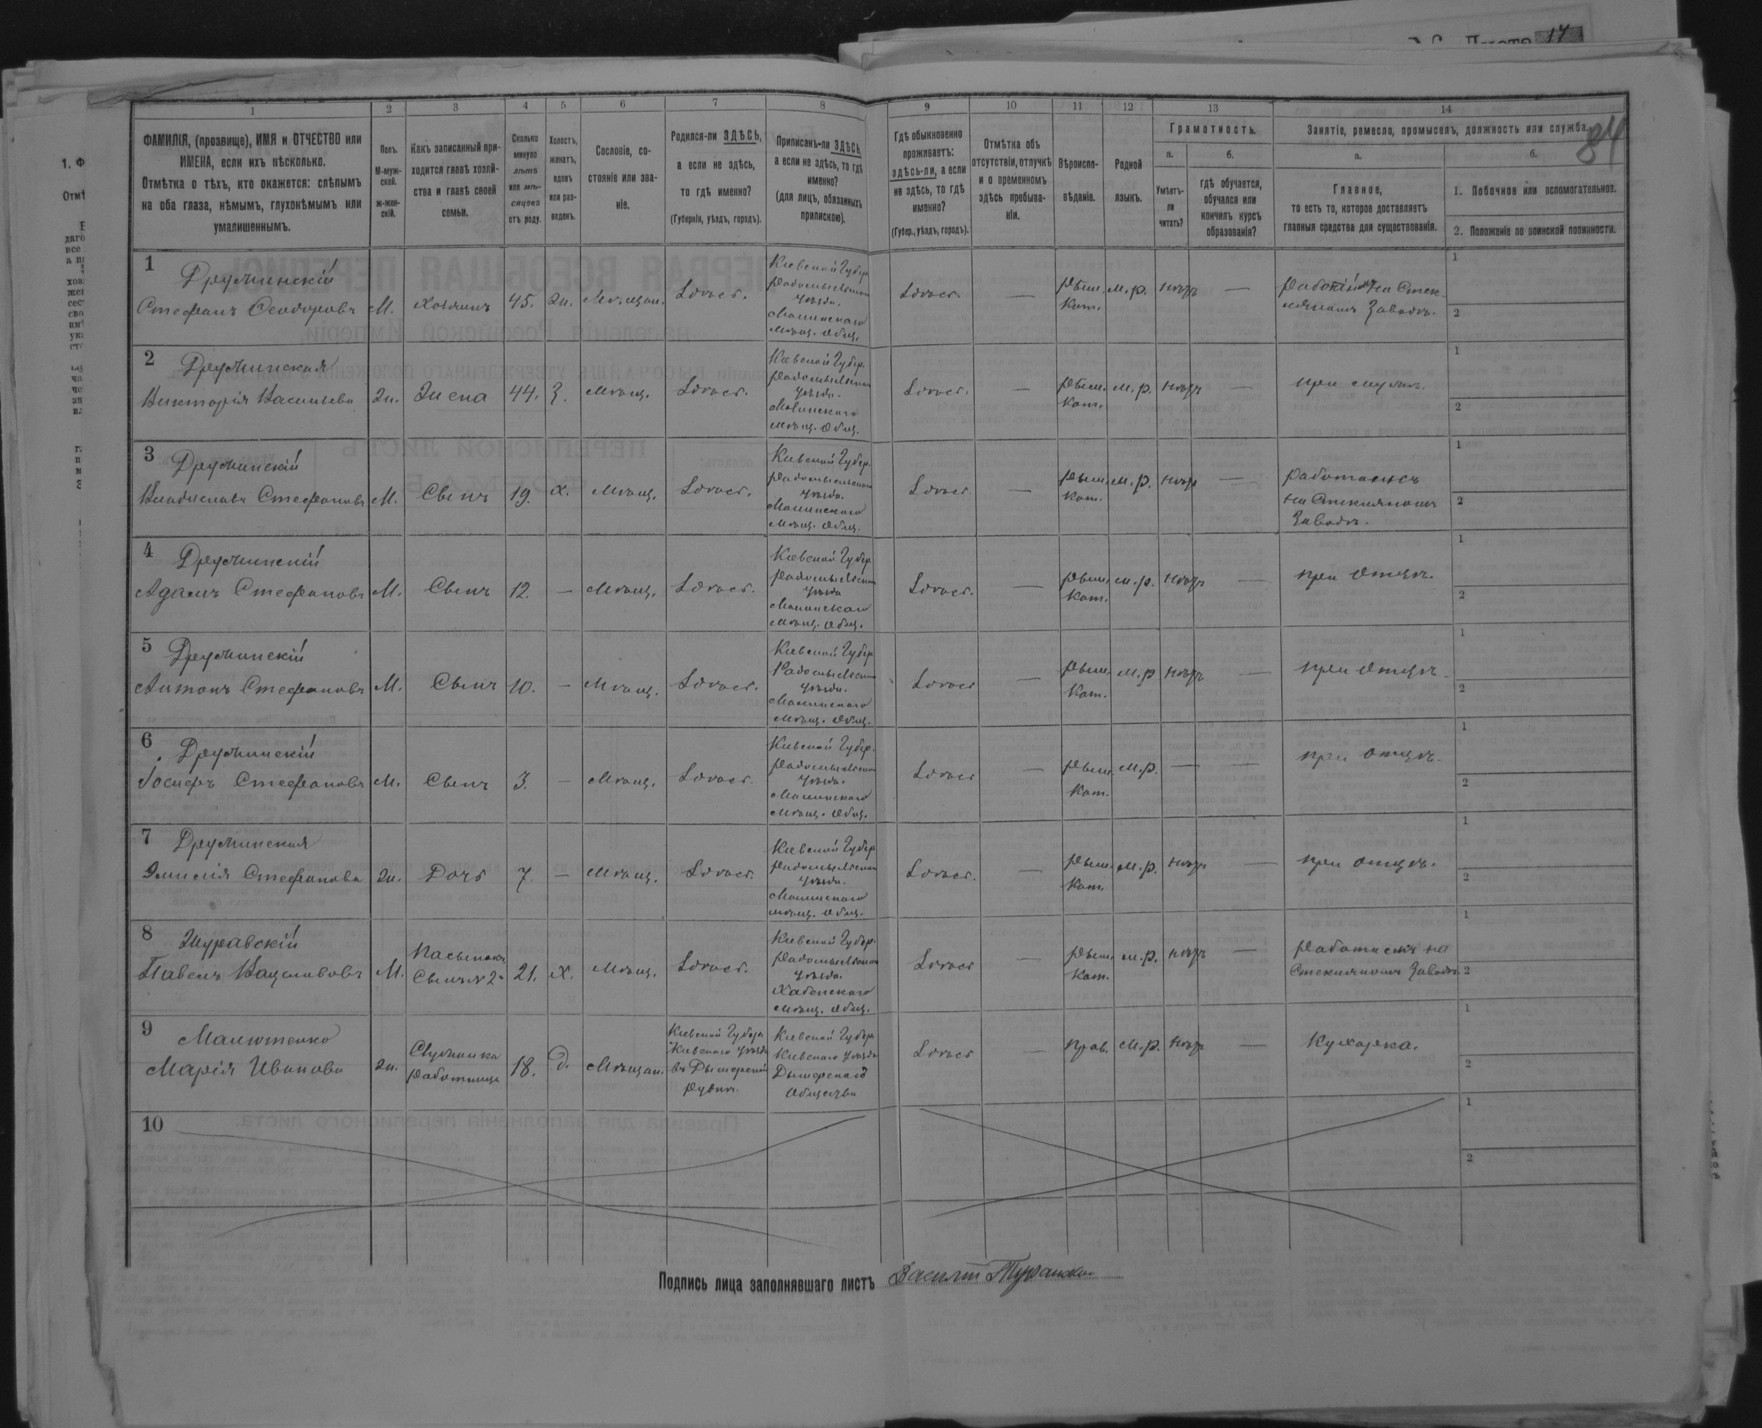 № Листа 17
84
1 2 3 4 5 6 7 8 9 10 11 12 13 14
ФАМИЛІЯ, (прозвище), ИМЯ и ОТЧЕСТВО или
ИМЕНА, если ихъ нѣсколько.
Отмѣтка о тѣхъ, кто окажется: слѣпымъ
на оба глаза, нѣмымъ, глухонѣмымъ или
умалишеннымъ.
Полъ.
М-муж-
ской.
ж-жен-
скій.
Какъ записанный при-
ходится главѣ хозяй-
ства и главѣ своей
семьи.
Сколько
минуло
лѣтъ
или мѣ-
сяцевъ
отъ роду.
Холостъ,
женатъ,
вдовъ
или раз-
веденъ.
Сословіе, со-
стояніе или зва-
ніе.
Родился-ли ЗДѢСЬ,
а если не здѣсь,
то гдѣ именно?
(Губернія, уѣздъ, городъ).
Приписанъ-ли ЗДѢСЬ,
а если не здѣсь, то гдѣ
именно?
(для лицъ, обязанныхъ
припискою).
Гдѣ обыкновенно
проживаетъ:
здѣсь-ли, а если
не здѣсь, то гдѣ
именно?
(Губер., уѣздъ, городъ).
Отмѣтка объ
отсутствіи, отлучкѣ
и о временномъ
здѣсь пребыва-
ніи.
Вѣроиспо-
вѣданіе.
Родной
языкъ.
Грамотность.
а.
Умѣетъ-
ли
читать?
б.
гдѣ обучается,
обучался или
кончилъ курсъ
образованія?
Занятіе, ремесло, промыселъ, должность или служба.
а.
Главное,
то есть то, которое доставляетъ
главныя средства для существованія.
б.
1. Побочное или вспомогательное.
2. Положеніе по воинской повинности.
1
Дружинскій
Стефанъ Феодоровъ М. хозяинъ 45. ж. Мѣщан. Здѣсь.
Кіевской Губер.
Радомысльского
уѣзда.
Малинского
мѣщ. общ.
Здѣсь. — Рим. Кат. м.р. нѣтъ —
Рабочій на Стек
лянномъ Заводѣ.
2
Дружинская
Викторія Васильева ж. Жена 44. З. Мѣщ. Здѣсь.
Кіевской Губер.
Радомысльского
уѣзда.
Малинского
мѣщ. общ.
Здѣсь. — Рим. Кат. м.р. нѣтъ — при мужѣ.
3
Дружинскій
Владиславъ Стефановъ М. Сынъ 19. х. Мѣщ. Здѣсь.
Кіевской Губер.
Радомысльского
уѣзда.
Малинского
мѣщ. общ.
Здѣсь — Рим. Кат. м.р. нѣтъ —
Работникъ
на Стеклянномъ
Заводѣ.
4
Дружинскій
Адамъ Стефановъ М. Сынъ 12. — Мѣщ. Здѣсь.
Кіевской Губер.
Радомысльского
уѣзда
Малинского
мѣщ. общ.
Здѣсь. — Рим. Кат. м.р. нѣтъ — при отцѣ.
5
Дружинскій
Антонъ Стефановъ М. Сынъ 10. — Мѣщ. Здѣсь.
Кіевской Губер.
Радомысльского
уѣзда.
Малинского
мѣщ. общ.
Здѣсь — Рим. Кат. м.р. нѣтъ — при отцѣ.
6
Дружинскій
Іосифъ Стефановъ М. Сынъ 3. — Мѣщ. Здѣсь.
Кіевской Губер.
Радомысльского
уѣзда.
Малинского
мѣщ. общ.
Здѣсь — Рим. Кат. м.р. — — при отцѣ.
7
Дружинская
Эмилія Стефанова ж. Дочь 7. — Мѣщ. Здѣсь.
Кіевской Губер.
Радомысльского
уѣзда.
Малинского
мѣщ. общ.
Здѣсь. — Рим. Кат. м.р. нѣтъ — при отцѣ.
8
Журавскій
Павелъ Вацлавовъ М. Пасынокъ Сынъ № 2 21. х. Мѣщ. Здѣсь.
Кіевской Губер.
Радомысльского
уѣзда.
Хабенского
мѣщ. общ.
Здѣсь — Рим. Кат. м.р. нѣтъ —
Работникъ на
Стеклянномъ Заводѣ
9
Малютенко
Марія Иванова ж. Служанка Работница 18. д. Мѣщан.
Кіевской Губер.
Кіевского уѣзда
въ Дымерской
Рудни.
Кіевской Губер.
Кіевского уѣзда
Дымерского
общества
Здѣсь — Прав. м.р. нѣтъ — Кухарка.
10
Подпись лица заполнявшаго листъ Василій